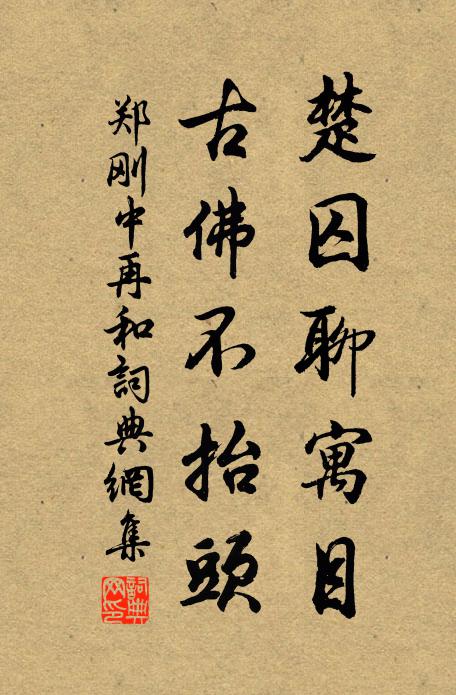 楚囚聊寓目
古佛不抬頭
郑刚中再和詞典網集
詞典网印